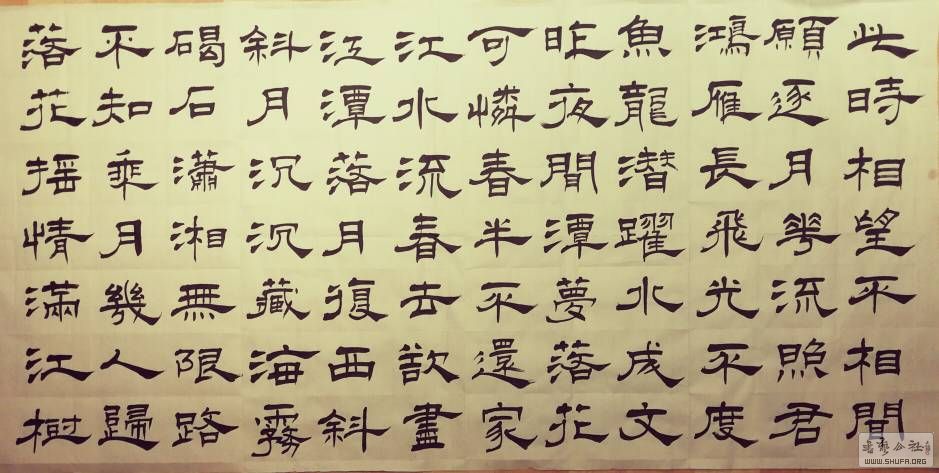 此時相望不相聞
願逐月華流照君
鴻雁長飛光不度
魚龍潛躍水成文
昨夜閒潭夢落花
可憐春半不還家
江水流春去欲盡
江潭落月復西斜
斜月沉沉藏海霧
碣石瀟湘無限路
不知乘月幾人歸
落花搖情滿江樹
書藝公社
WWW.SHUFA.ORG